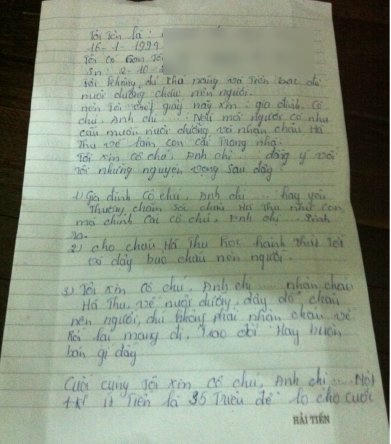 Tôi tên là :
16 - 1 - 1999
Tôi có con tên
Sn: 2-10-
Tôi không đủ khả năng và tiền bạc để
nuôi dưỡng cháu nên người.
nên Tôi viết giấy này xin : gia đình. Cô
chú, Anh chị ... Nếu mọi người có nhu
cầu muốn nuôi dưỡng và nhận cháu Hà
Thu về làm con cái trong nhà.
Tôi xin cô chú, Anh chị ... đồng ý với
tôi những nguyện vọng sau đây
1) Gia đình cô chú, Anh chị ... hãy yêu
thương, chăm sóc cháu Hà Thu như con
mà chính cái cô chú, Anh chị ... sinh
ra.
2) cho cháu Hà Thu học hành thật tốt
và dạy bảo cháu nên người.
3) Tôi xin cô chú, Anh chị ... nhận cháu
Hà Thu, về nuôi dưỡng, dạy dỗ, cháu
nên người, chứ không phải nhận cháu về
rồi lại mang đi, trao đổi Hay buôn
bán gì đấy
Cuối cùng tôi xin cô chú, Anh chị ... Một
ít Tiền là 35 Triệu để lo cho cuộc
HẢI TIẾN